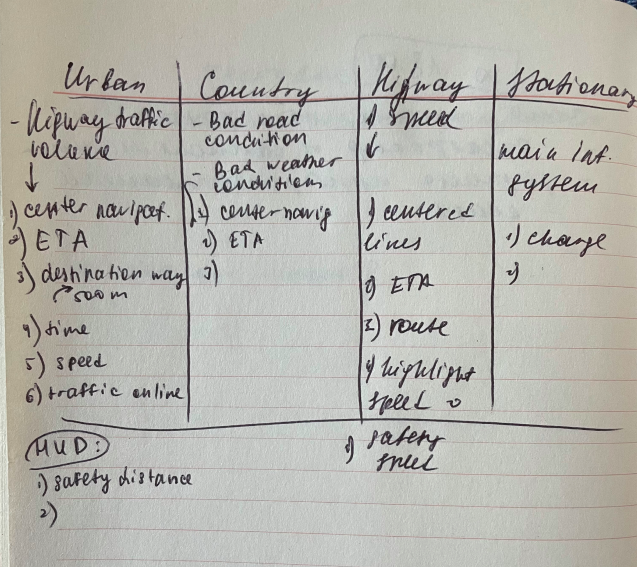 Urban
- Higway traffic
volume
↓
1) center navigat.
2) ETA
3) destination way
500m
4) time
5) speed
6) traffic online
Country
- Bad road
condition
- Bad weather
conditions
1) center navig
2) ETA
3)
Higway
speed
↓
1) centered
lines
2) ETA
3) route
4) highlight
speed
Stationary
main inf.
system
1) change
2)
HUD:
1) safety distance
2)
1) safety
speed